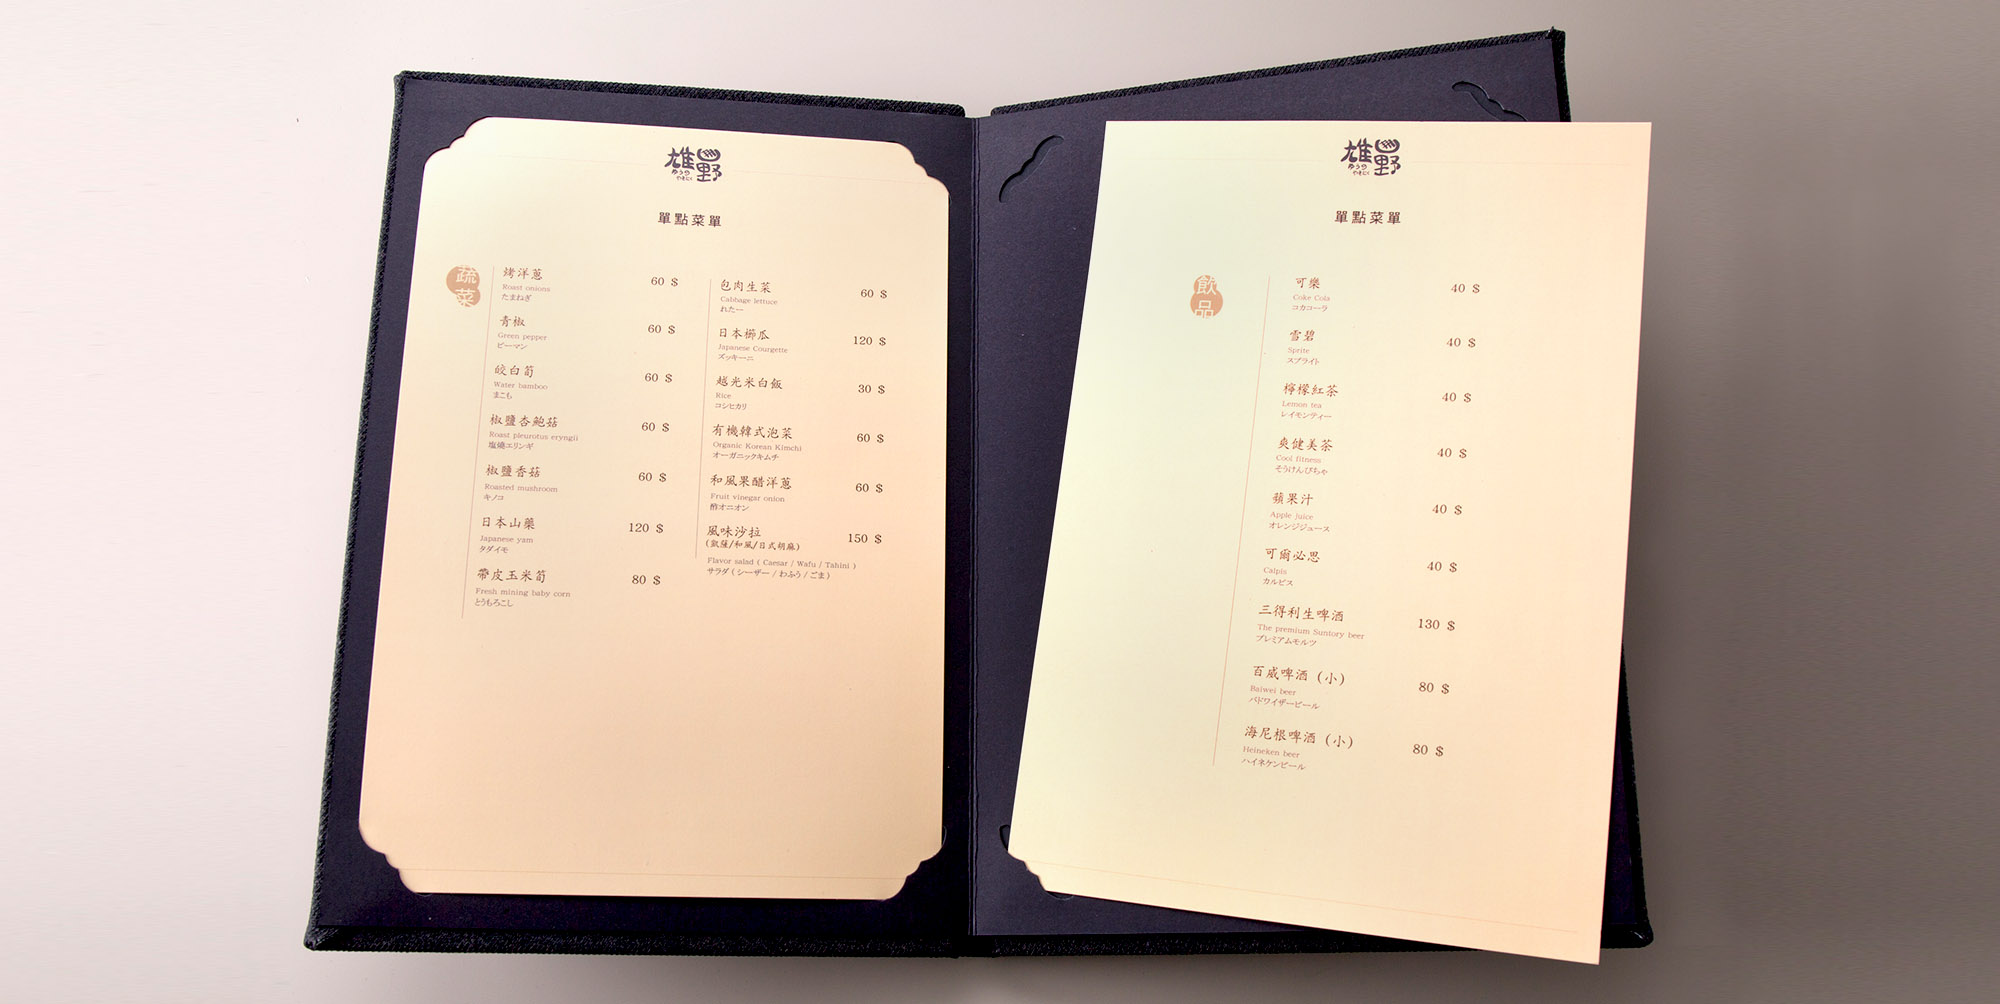 雄野
ゆうや
やきにく
單點菜單
蔬菜
烤洋蔥 60 $
Roast onions
たまねぎ
青椒 60 $
Green pepper
ピーマン
皎白筍 60 $
Water bamboo
まこも
椒鹽杏鮑菇 60 $
Roast pleurotus eryngii
塩燒エリンギ
椒鹽香菇 60 $
Roasted mushroom
キノコ
日本山藥 120 $
Japanese yam
タダイモ
帶皮玉米筍 80 $
Fresh mining baby corn
とうもろこし
包肉生菜 60 $
Cabbage lettuce
れたー
日本櫛瓜 120 $
Japanese Courgette
ズッキーニ
越光米白飯 30 $
Rice
コシヒカリ
有機韓式泡菜 60 $
Organic Korean Kimchi
オーガニックキムチ
和風果醋洋蔥 60 $
Fruit vinegar onion
酢オニオン
風味沙拉 150 $
(凱薩/和風/日式胡麻)
Flavor salad ( Caesar / Wafu / Tahini )
サラダ ( シーザー / わふう / ごま )
雄野
ゆうや
やきにく
單點菜單
飲品
可樂 40 $
Coke Cola
コカコーラ
雪碧 40 $
Sprite
スプライト
檸檬紅茶 40 $
Lemon tea
レイモンティー
爽健美茶 40 $
Cool fitness
そうけんびちゃ
蘋果汁 40 $
Apple juice
オレンジジュース
可爾必思 40 $
Calpis
カルピス
三得利生啤酒 130 $
The premium Suntory beer
プレミアムモルツ
百威啤酒 (小) 80 $
Baiwei beer
バドワイザービール
海尼根啤酒 (小) 80 $
Heineken beer
ハイネケンビール